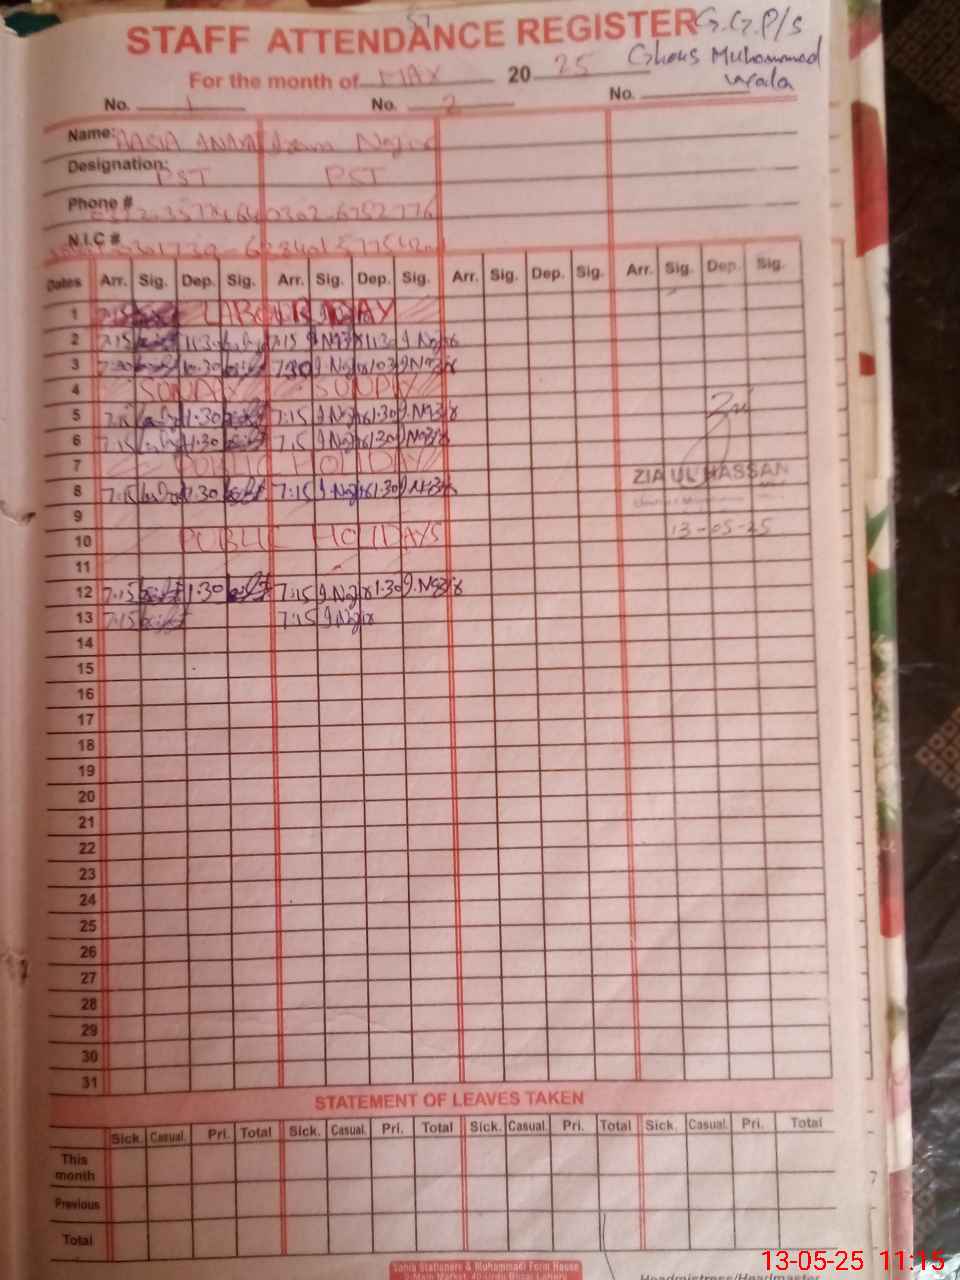 57
STAFF ATTENDANCE REGISTER G.G.P/S
For the month of MAY 2025 Ghous Muhammad
wala
No. 1 No. 2 No.
Name: AASIA Iram Nazir
Designation: PST PST
Phone # 0302-6752776
N.I.C #
Dates Arr. Sig. Dep. Sig. Arr. Sig. Dep. Sig. Arr. Sig. Dep. Sig. Arr. Sig. Dep. Sig.
1 7:15 LABOUR DAY
2 7:15 11:30 7:15 I.Nazir 11:30 I.Nazir
3 7:30 10:30 7:30 I.Nazir 10:30 I.Nazir
4 SUNDAY SUNDAY
5 7:15 1:30 7:15 I.Nazir 1:30 I.Nazir
6 7:15 1:30 7:15 I.Nazir 1:30 I.Nazir
7 PUBLIC HOLIDAY ZIA UL HASSAN
8 7:15 1:30 7:15 I.Nazir 1:30 I.Nazir
9
10 PUBLIC HOLIDAYS 13-05-25
11
12 7:15 1:30 7:15 I.Nazir 1:30 I.Nazir
13 7:15 7:15 I.Nazir
14
15
16
17
18
19
20
21
22
23
24
25
26
27
28
29
30
31
STATEMENT OF LEAVES TAKEN
Sick. Casual. Pri. Total Sick. Casual. Pri. Total Sick. Casual. Pri. Total Sick. Casual. Pri. Total
This
month
Previous
Total
Stationers & Muhammadi Form House
Main Market, 40-Urdu Bazar Lahore
Headmistress/Headmaster
13-05-25 11:15